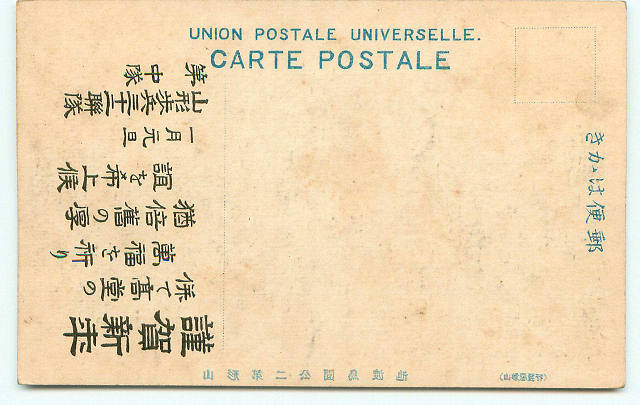 UNION POSTALE UNIVERSELLE.
CARTE POSTALE
郵便はがき
謹賀新年
併て高堂の
萬福を祈り
猶倍舊の厚
誼を希上候
一月元旦
山形歩兵三十二聯隊
第 中隊
山形第二公園